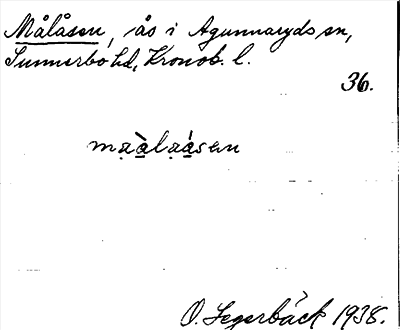 Målåsen, ås i Agunnaryds sn,
Sunnerbo hd, Kronob. l.
36.
mạà̱lạá̱sen
O. Segerbäck 1938.